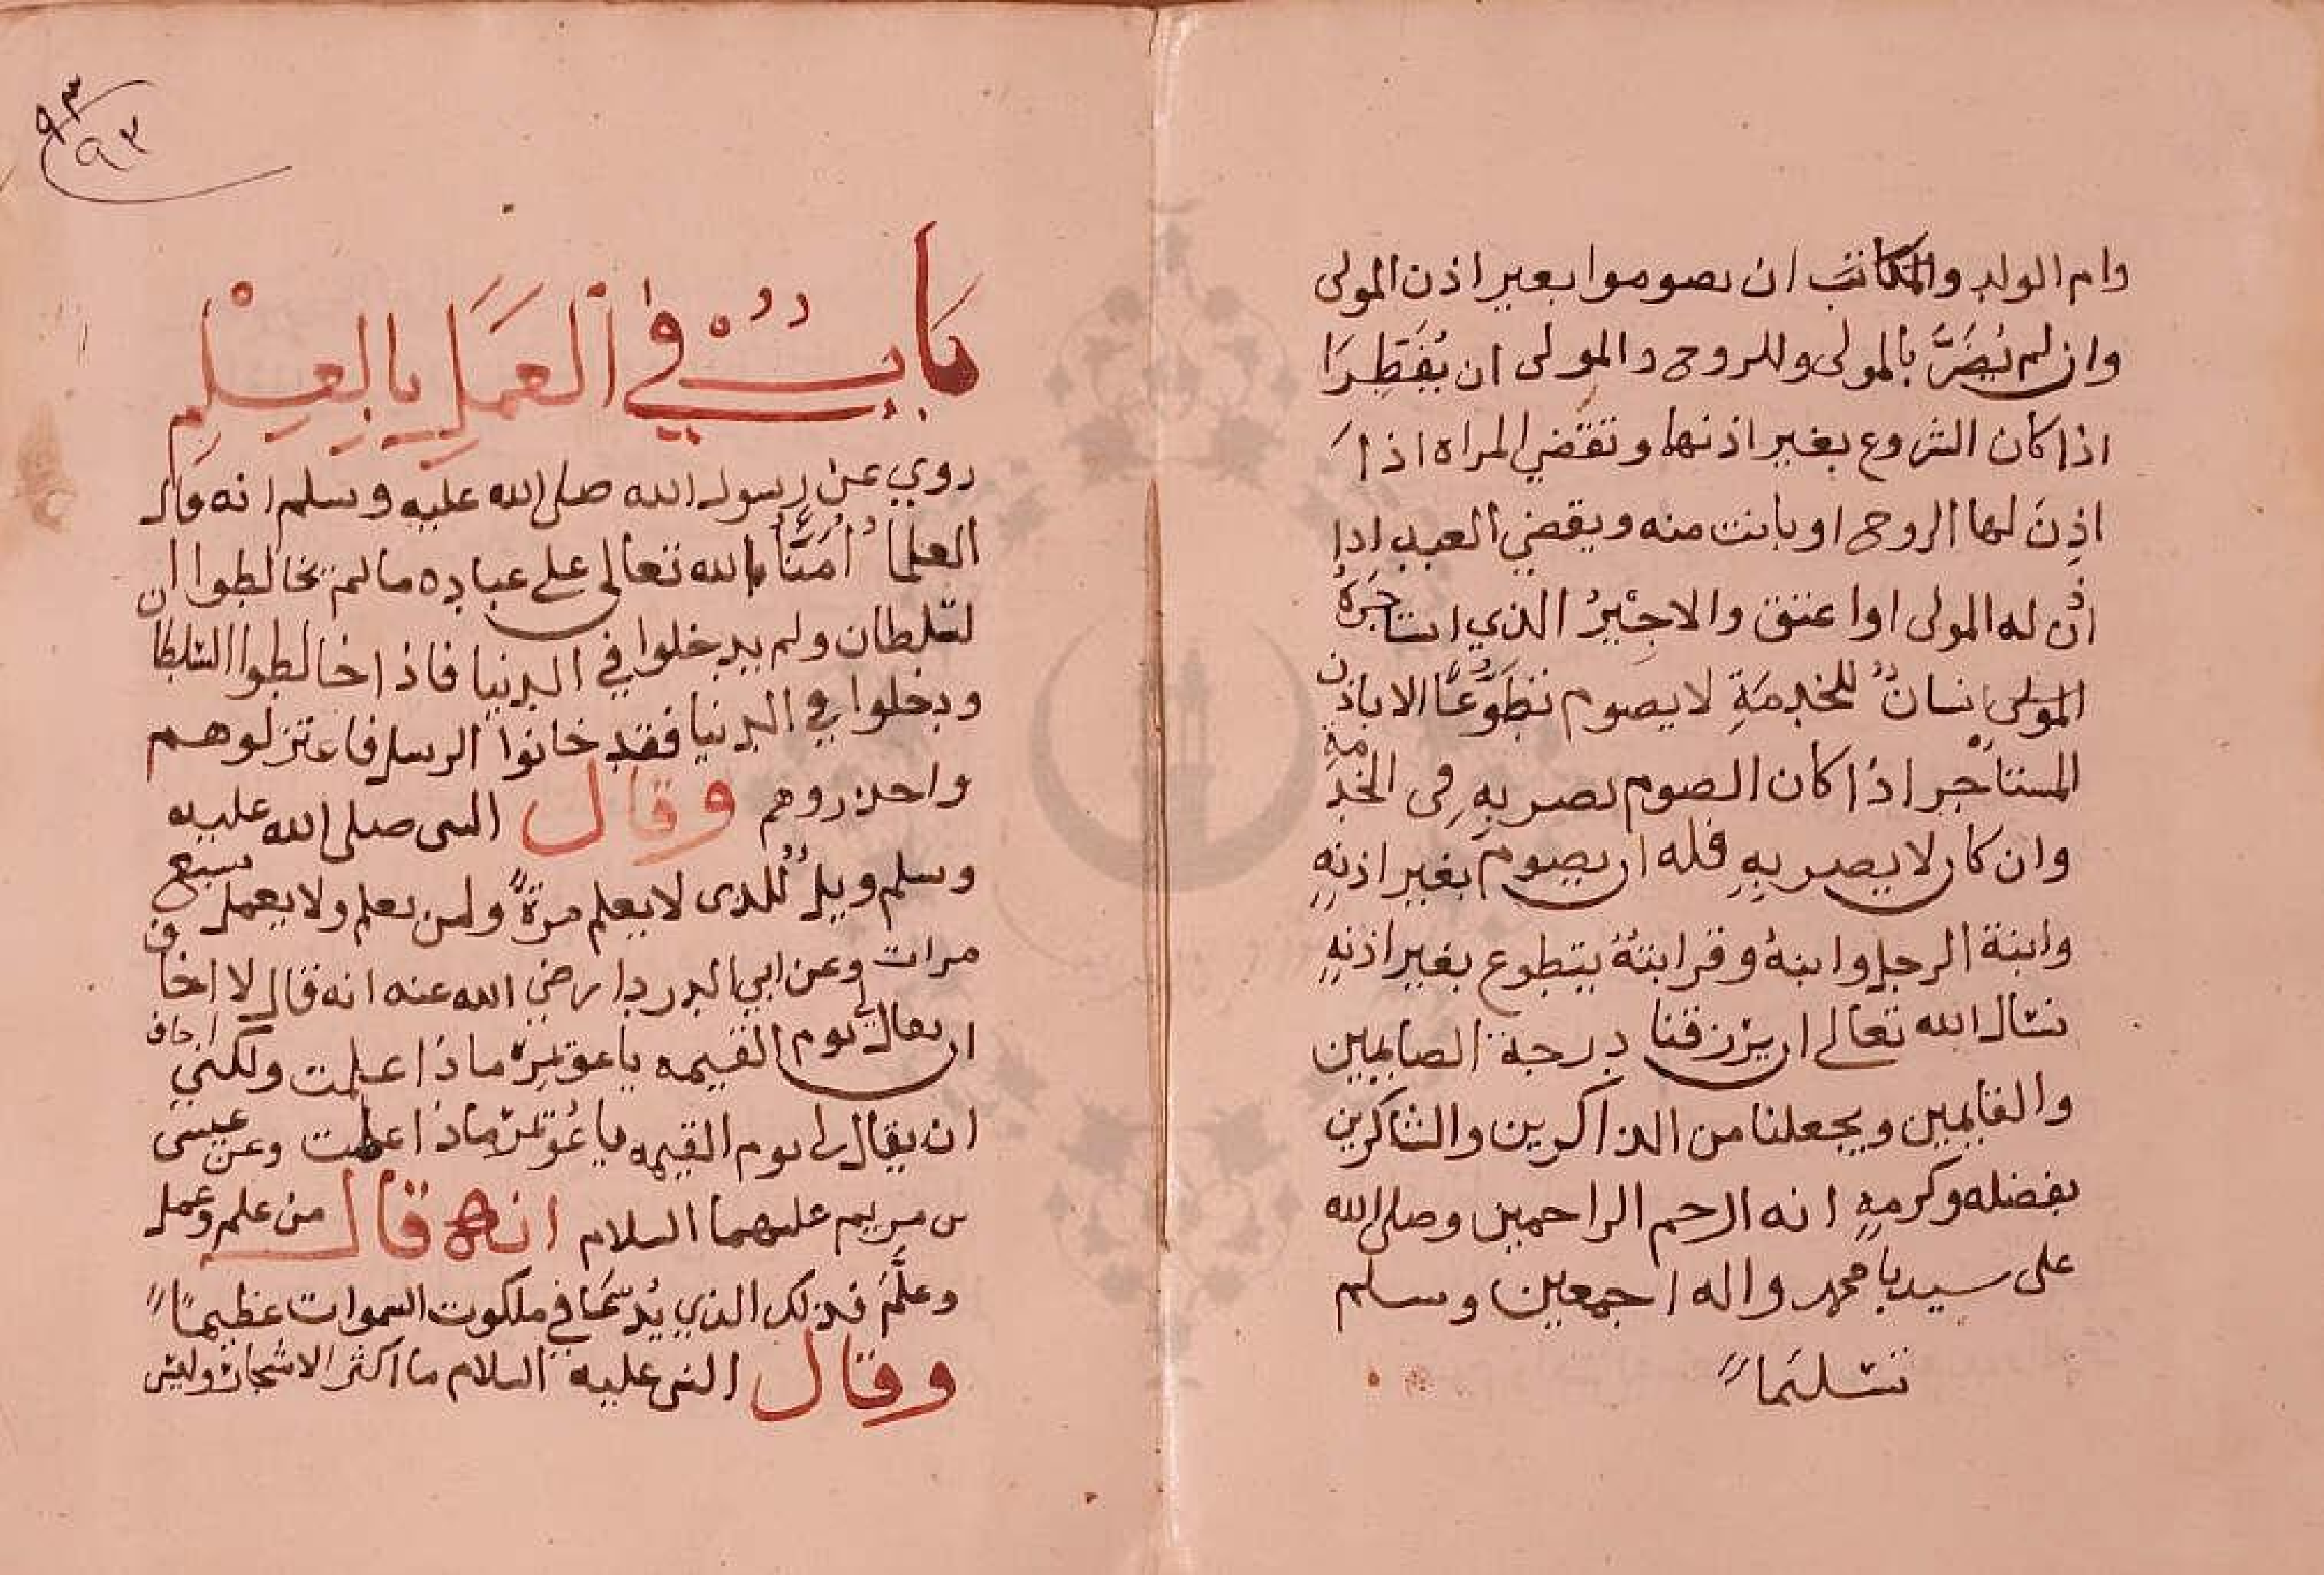 وام الولد والمكاتب ان يصوموا بغير اذن المولى
وان لم يُضَرَّ بالمولى وللزوج والمولى ان يُفَطِّرَا
اذا كان الشروع بغير اذنها وتقضي المراه اذا
اذِنَ لها الزوج او بانت منه ويقضي العبد اذا
اذن له المولى او اعتق والاجِيْرُ الذي استاجره
المولى انسانٌ للخدمَةِ لا يصوم تطَوُّعًا الا باذن
المستاجر اذا كان الصوم يضر بهِ في الخدمة
وان كان لا يضر بهِ فله ان يصوم بغير اذنهِ
وابنة الرجل وابنهُ وقرابتهُ يتطوع بغير اذنهِ
نسال الله تعالى ان يرزقنا درجة الصايمين
والقايمين ويجعلنا من الذاكرين والشاكرين
بفضله وكرمهِ انه ارحم الراحمين وصلى الله
على سيدنا محمد واله اجمعين وسلم
تسليمًا
٩٣
٩٣
بابٌ في العَمَلِ بالعِلْمِ
روي عن رسول الله صلى الله عليه وسلم انه قال
العلماُ اُمَنَّاُ الله تعالى على عباده ما لم يخالطوا ان
لسلطان ولم يدخلوا في الدنيا فاذا خالطوا السلطا
ودخلوا في الدنيا فقد خانوا الرسل فاعتزلوهم
واحذروهم وقال النبى صلى الله عليه
وسلم ويلٌ للذى لا يعلم مرةً ولمن يعلم ولا يعمل سبع
مرات وعن ابي الدردا رضي الله عنه انه قال لا اخاف
ان يقال لي يوم القيمه يا عويمر ماذا علمت ولكني اخاف
ان يقال لى يوم القيمه يا عُويمر ماذا عملت وعن عيسى
بن مريم عليهما السلام انه قال من علم وعمل
وعلَّمَ فذلك الذي يُدعَا في ملكوت السموات عظيمًا
وقال النبى عليه السلام ما اكثر الاشجار وليس